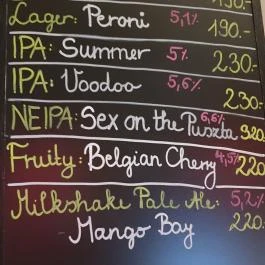 130.-
Lager: Peroni 5,1% 190.-
IPA: Summer 5% 230.-
IPA: Voodoo 5,6% 230.-
NEIPA: Sex on the Puszta 6,6% 320
Fruity: Belgian Cherry 4,5% 220
Milkshake Pale Ale: 5,2%
Mango Bay 220.-